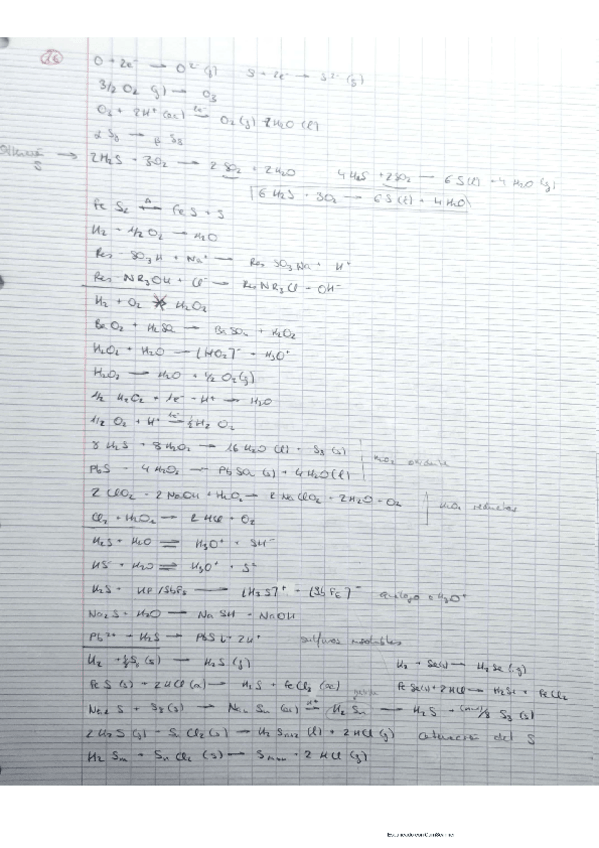 16
O + 2e⁻ → O²⁻ (g) S + 2e⁻ → S²⁻ (g)
3/2 O₂ (g) → O₃
O₃ + 2H⁺ (ac) →(2e⁻) O₂ (g) + H₂O (l)
α S₈ → β S₈
S → 2H₂S + 3O₂ → 2 SO₂ + 2H₂O 4H₂S + 2SO₂ → 6S(l) + 4H₂O (g)
6 H₂S + 3O₂ → 6S (l) + 4H₂O
Fe S₂ →(Δ) FeS + S
H₂ + 1/2 O₂ → H₂O
Res - SO₃H + Na⁺ → Res SO₃Na + H⁺
Res - NR₃OH + Cl⁻ → Res NR₃Cl + OH⁻
H₂ + O₂ ↛ H₂O₂
BaO₂ + H₂SO₄ → BaSO₄ + H₂O₂
H₂O₂ + H₂O → [HO₂]⁻ + H₃O⁺
H₂O₂ → H₂O + 1/2 O₂(g)
1/2 H₂O₂ + 1e⁻ + H⁺ → H₂O
1/2 O₂ + H⁺ →(1e⁻) 1/2 H₂O₂
8 H₂S + 8H₂O₂ → 16 H₂O (l) + S₈ (s)
PbS + 4H₂O₂ → PbSO₄ (s) + 4H₂O(l) H₂O₂ oxidante
2 ClO₂ + 2NaOH + H₂O₂ → 2 NaClO₂ + 2H₂O + O₂
Cl₂ + H₂O₂ → 2 HCl + O₂ H₂O₂ reductor
H₂S + H₂O ⇌ H₃O⁺ + SH⁻
HS⁻ + H₂O ⇌ H₃O⁺ + S²⁻
H₂S + HF/SbF₅ → [H₃S]⁺ + [SbF₆]⁻ análogo a H₃O⁺
Na₂S + H₂O → NaSH + NaOH
Pb²⁺ + H₂S → PbS↓ + 2H⁺ sulfuros insolubles
H₂ + 1/8 S₈ (s) → H₂S (g) H₂ + Se(s) → H₂Se (g)
FeS (s) + 2HCl (ac) → H₂S + FeCl₂ (ac) FeSe(s) + 2HCl → H₂Se + FeCl₂
Na₂S + S₈ (s) → Na₂Sn (ac) →(H⁺) H₂Sn → H₂S + (n-1)/8 S�8 (s)
2H₂S (g) + Sn Cl₂ (s) → H₂Sn+2 (l) + 2HCl (g) catenación del S
H₂Sm + SnCl₂ (s) → Sm+n + 2 HCl (g)
Escaneado con CamScanner